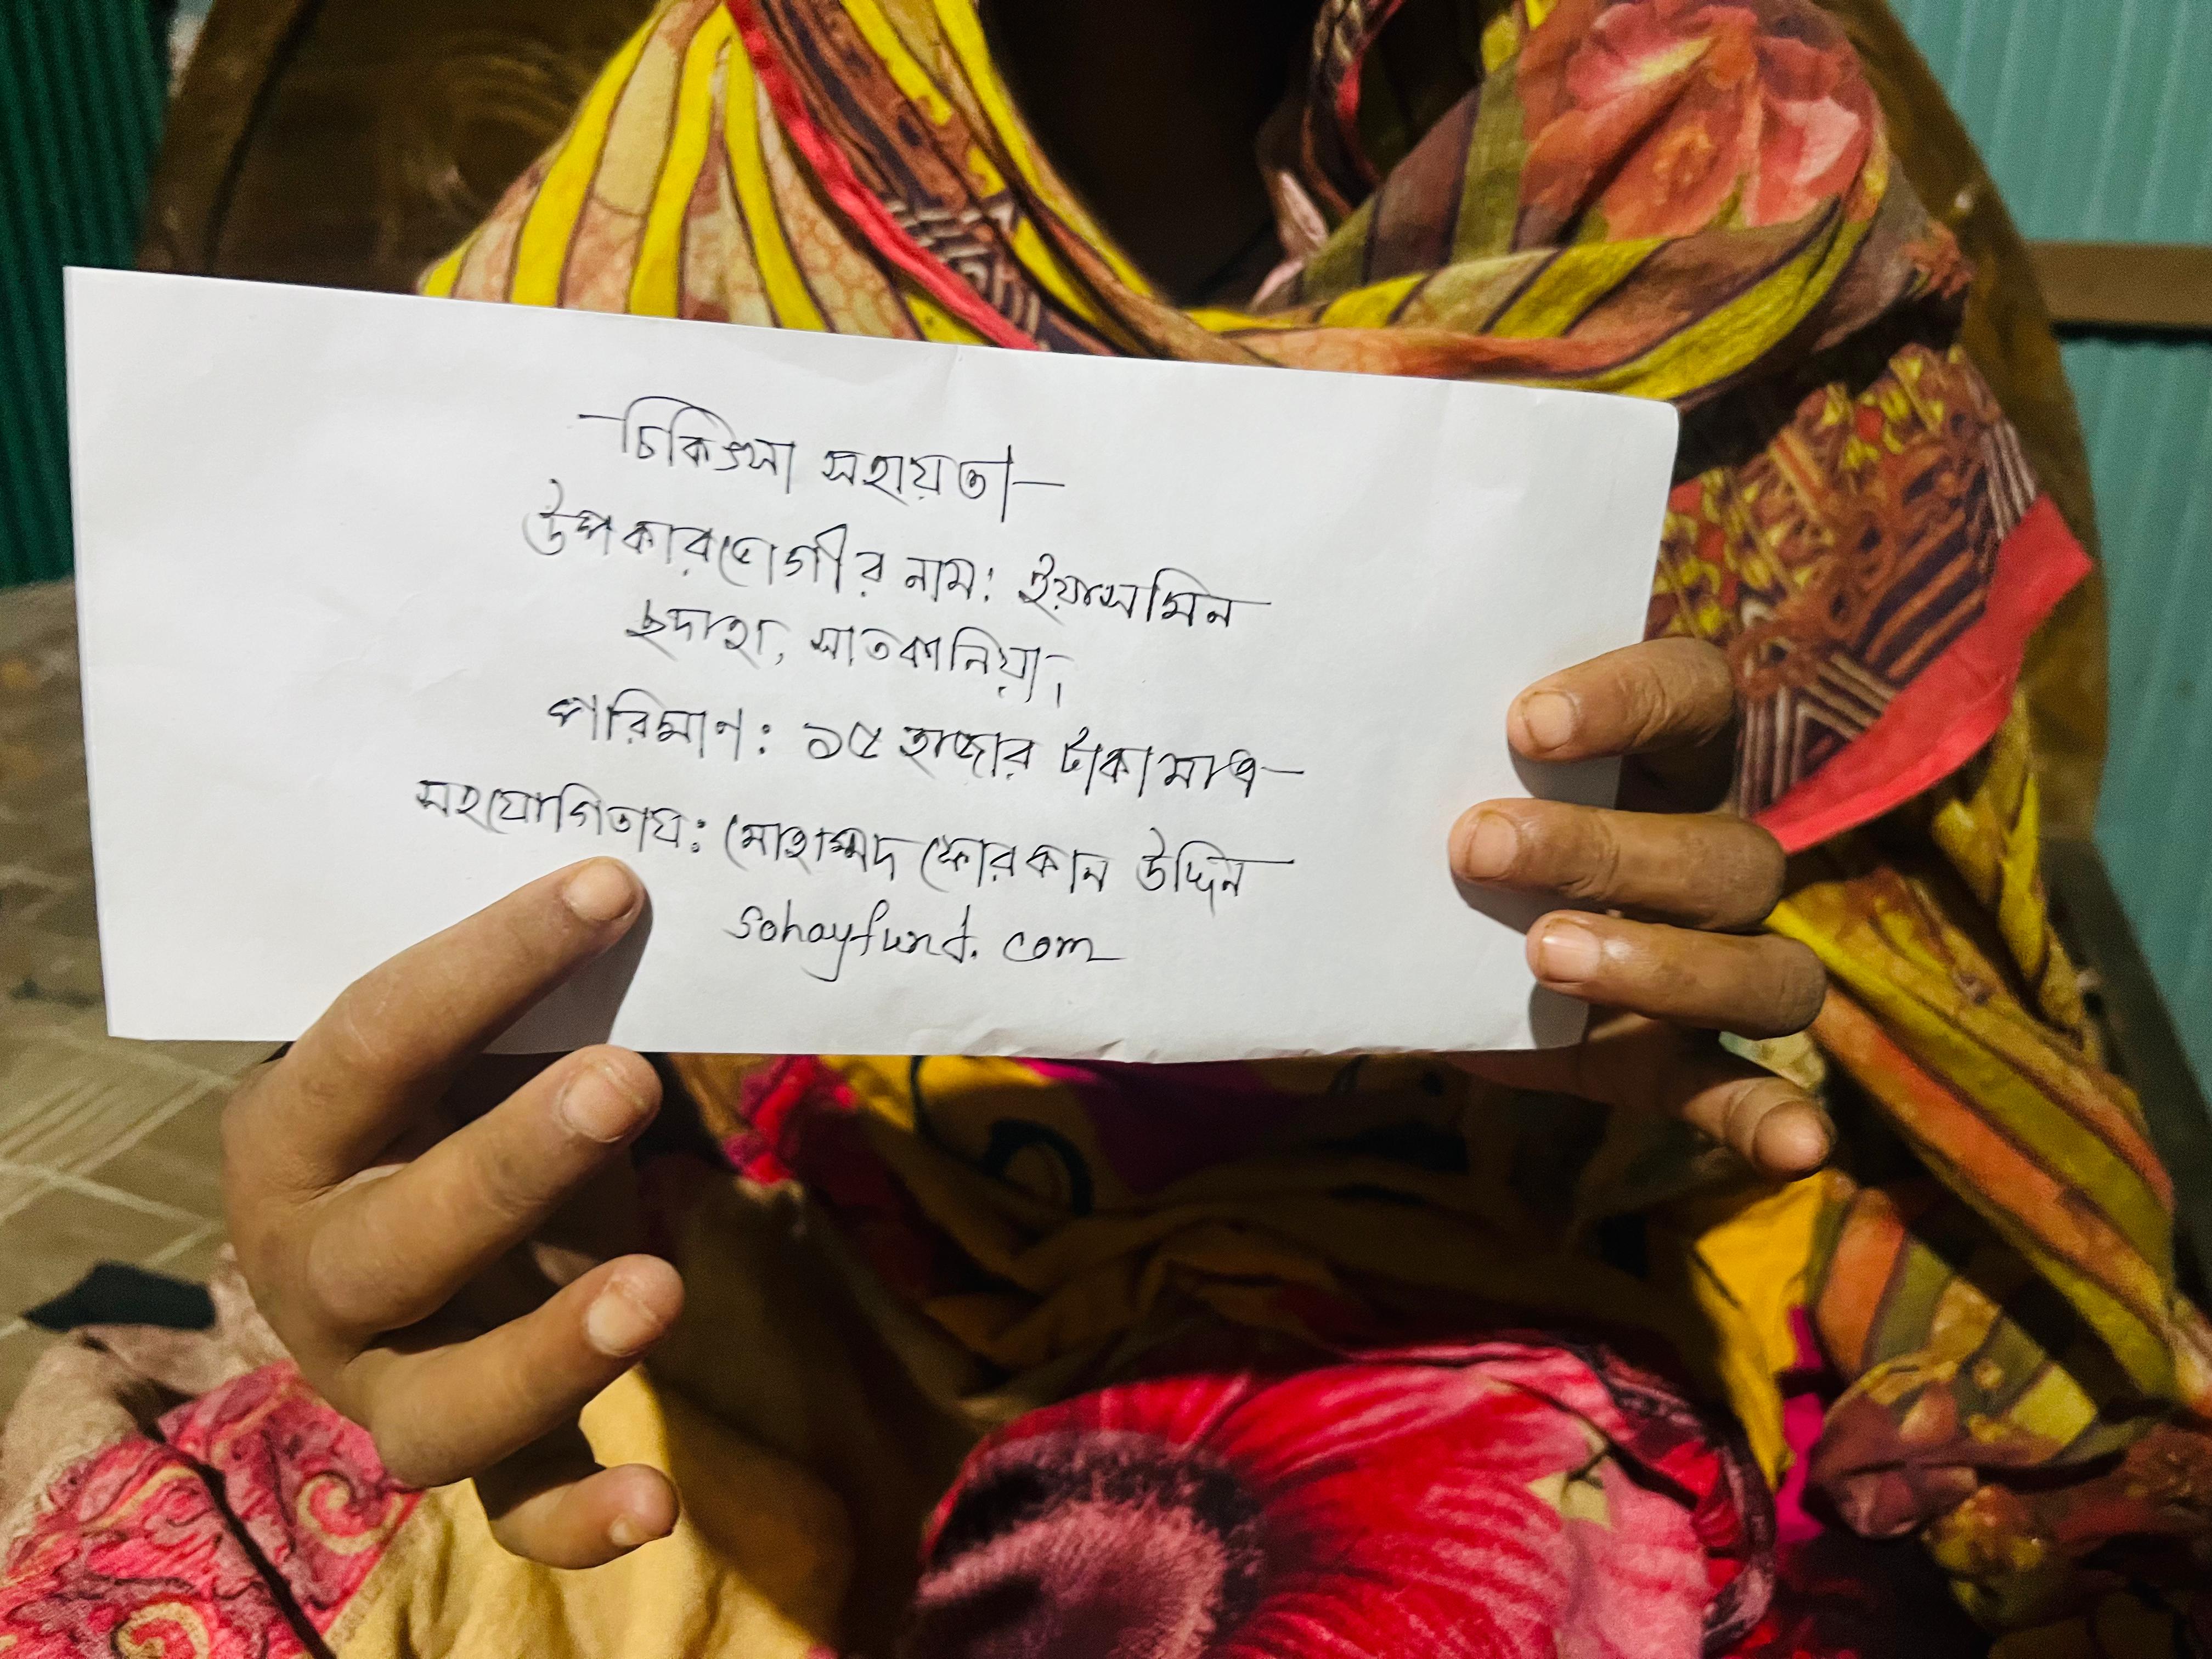 চিকিৎসা সহায়তা
উপকারভোগীর নাম: ইয়াসমিন
ছদাহা, সাতকানিয়া।
পরিমাণ: ১৫ হাজার টাকা মাত্র
সহযোগিতায়: মোহাম্মদ ফোরকান উদ্দিন
sohayfund.com